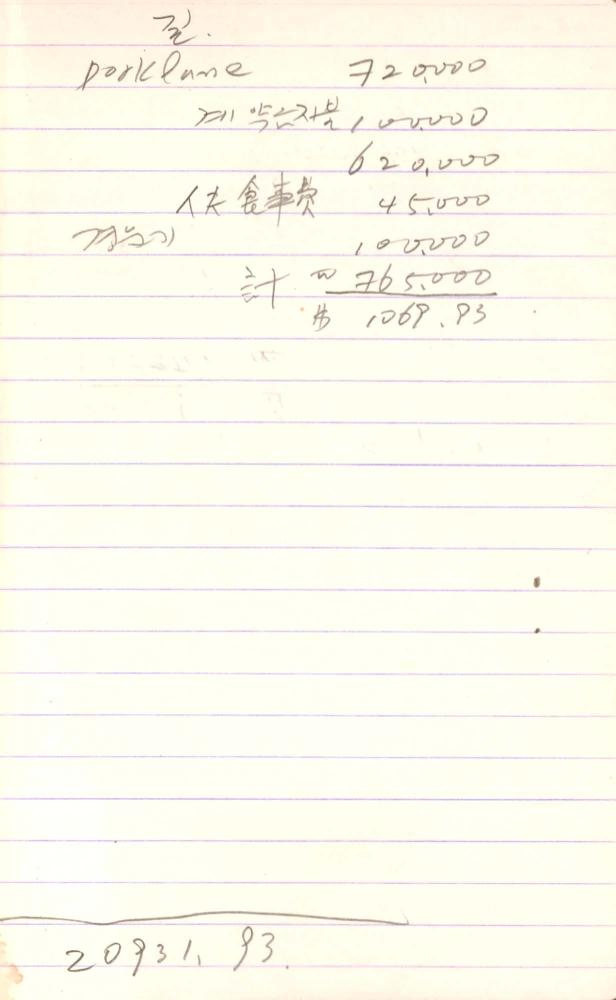 Parklane 720,000
계약금지불 100,000
620,000
人夫 食事费 45,000
100,000
計 ₩ 765,000
$ 1069.93
20931.93